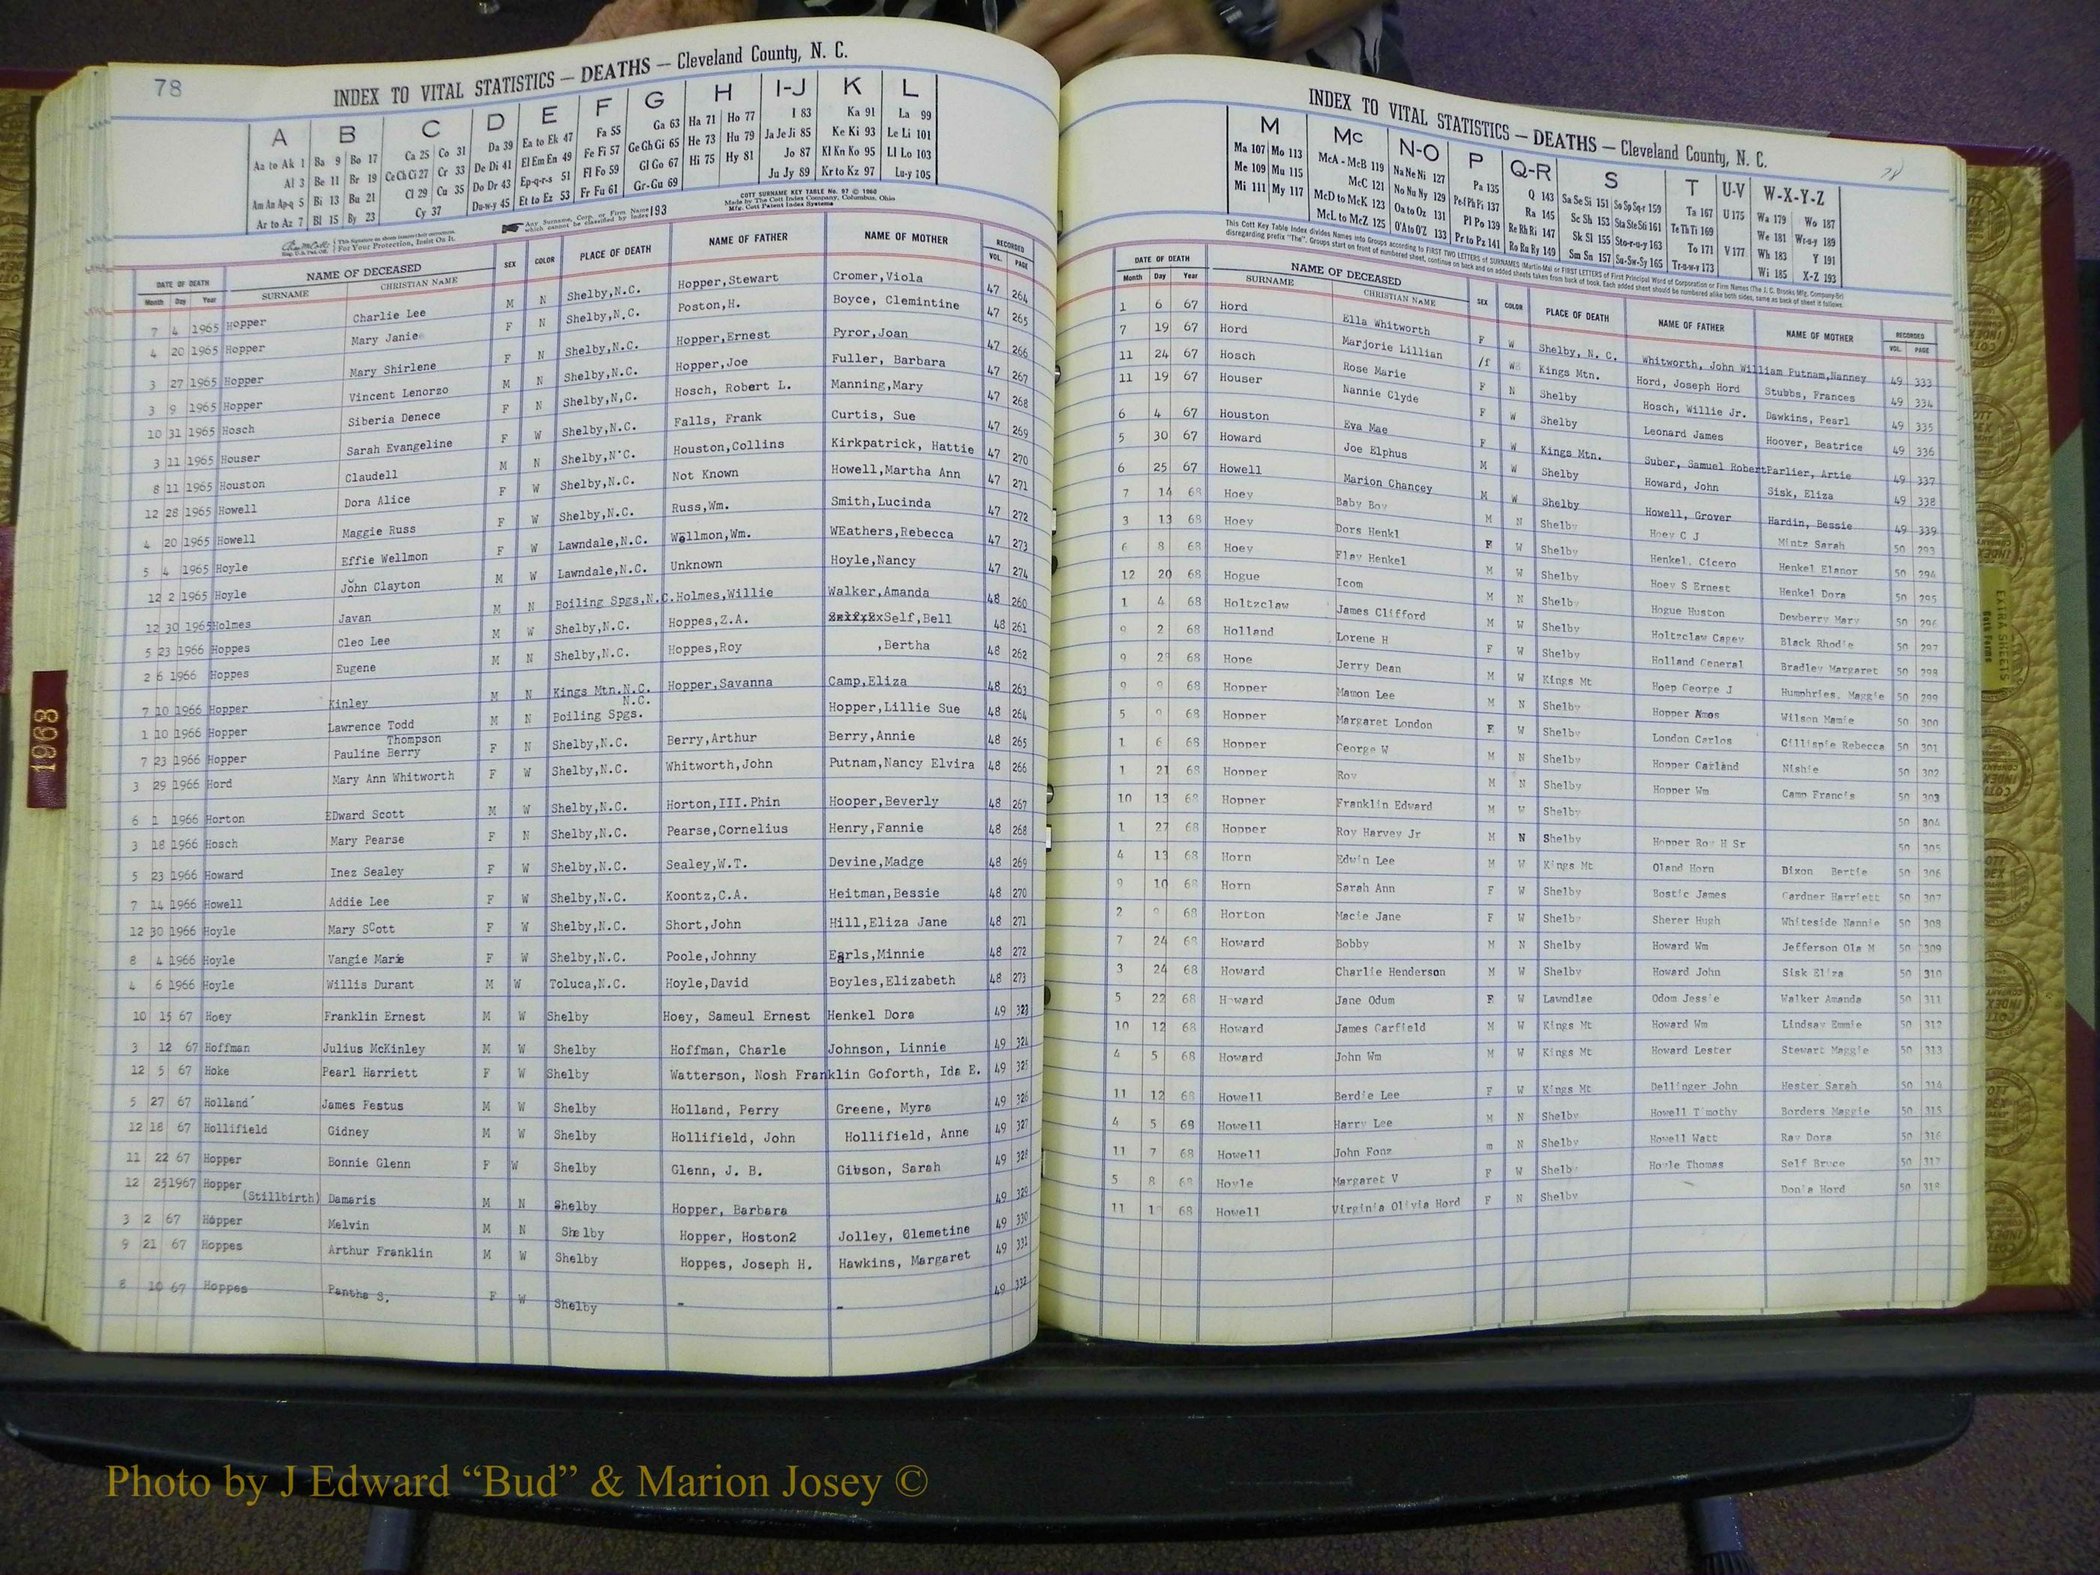 78
INDEX TO VITAL STATISTICS — DEATHS — Cleveland County, N. C.
A B C D E F G H I-J K L
Aa to Ak 1 Ba 9 Bo 17 Ca 25 Co 31 Da 39 Ea to Ek 47 Fa 55 Ga 63 Ha 71 Ho 77 I 83 Ka 91 La 99
Al 3 Be 11 Br 19 Ce Ch Ci 27 Cr 33 De Di 41 El Em En 49 Fe Fi 57 Ge Gh Gi 65 He 73 Hu 79 Ja Je Ji 85 Ke Ki 93 Le Li 101
Am An Ap-q 5 Bi 13 Bu 21 Cl 29 Cu 35 Do Dr 43 Ep-q-r-s 51 Fl Fo 59 Gl Go 67 Hi 75 Hy 81 Jo 87 Kl Kn Ko 95 Ll Lo 103
Ar to Az 7 Bl 15 By 23 Cy 37 Du-w-y 45 Et to Ez 53 Fr Fu 61 Gr-Gu 69 Ju Jy 89 Kr to Kz 97 Lu-y 105
COTT SURNAME KEY TABLE No. 97 © 1960
Made by The Cott Index Company, Columbus, Ohio
Mfg. Cott Patent Index Systems
Any Surname, Corp. or Firm Name which cannot be classified by Index 193
For Your Protection, Insist On It.
DATE OF DEATH NAME OF DECEASED SEX COLOR PLACE OF DEATH NAME OF FATHER NAME OF MOTHER RECORDED
Month Day Year SURNAME CHRISTIAN NAME VOL. PAGE
7 4 1965 Hopper Charlie Lee M N Shelby,N.C. Hopper,Stewart Cromer,Viola 47 264
4 20 1965 Hopper Mary Janie F N Shelby,N.C. Poston,H. Boyce, Clemintine 47 265
3 27 1965 Hopper Mary Shirlene F N Shelby,N.C. Hopper,Ernest Pyror,Joan 47 266
3 9 1965 Hopper Vincent Lenorzo M N Shelby,N.C. Hopper,Joe Fuller, Barbara 47 267
10 31 1965 Hosch Siberia Denece F N Shelby,N,C. Hosch, Robert L. Manning,Mary 47 268
3 11 1965 Houser Sarah Evangeline F W Shelby,N.C. Falls, Frank Curtis, Sue 47 269
8 11 1965 Houston Claudell M N Shelby,N'C. Houston,Collins Kirkpatrick, Hattie 47 270
12 28 1965 Howell Dora Alice F W Shelby,N.C. Not Known Howell,Martha Ann 47 271
4 20 1965 Howell Maggie Russ F W Shelby,N.C. Russ,Wm. Smith,Lucinda 47 272
5 4 1965 Hoyle Effie Wellmon F W Lawndale,N.C. Wellmon,Wm. WEathers,Rebecca 47 273
12 2 1965 Hoyle John Clayton M W Lawndale,N.C. Unknown Hoyle,Nancy 47 274
12 30 1965 Holmes Javan M N Boiling Spgs,N.C. Holmes,Willie Walker,Amanda 48 260
5 23 1966 Hoppes Cleo Lee M W Shelby,N.C. Hoppes,Z.A. Self,Bell 48 261
2 6 1966 Hoppes Eugene M N Shelby,N.C. Hoppes,Roy ,Bertha 48 262
7 10 1966 Hopper Kinley M N Kings Mtn.N.C. Hopper,Savanna Camp,Eliza 48 263
1 10 1966 Hopper Lawrence Todd M N Boiling Spgs. N.C. Hopper,Lillie Sue 48 264
7 23 1966 Hopper Pauline Berry Thompson F N Shelby,N.C. Berry,Arthur Berry,Annie 48 265
3 29 1966 Hord Mary Ann Whitworth F W Shelby,N.C. Whitworth,John Putnam,Nancy Elvira 48 266
6 1 1966 Horton EDward Scott M W Shelby,N.C. Horton,III.Phin Hooper,Beverly 48 267
3 18 1966 Hosch Mary Pearse F N Shelby,N.C. Pearse,Cornelius Henry,Fannie 48 268
5 23 1966 Howard Inez Sealey F W Shelby,N.C. Sealey,W.T. Devine,Madge 48 269
7 14 1966 Howell Addie Lee F W Shelby,N.C. Koontz,C.A. Heitman,Bessie 48 270
12 30 1966 Hoyle Mary SCott F W Shelby,N.C. Short,John Hill,Eliza Jane 48 271
8 4 1966 Hoyle Vangie Marie F W Shelby,N.C. Poole,Johnny Earls,Minnie 48 272
4 6 1966 Hoyle Willis Durant M W Toluca,N.C. Hoyle,David Boyles,Elizabeth 48 273
10 15 67 Hoey Franklin Ernest M W Shelby Hoey, Sameul Ernest Henkel Dora 49 323
3 12 67 Hoffman Julius McKinley M W Shelby Hoffman, Charle Johnson, Linnie 49 324
12 5 67 Hoke Pearl Harriett F W Shelby Watterson, Nosh Franklin Goforth, Ida E. 49 325
5 27 67 Holland James Festus M W Shelby Holland, Perry Greene, Myra 49 326
12 18 67 Hollifield Gidney M W Shelby Hollifield, John Hollifield, Anne 49 327
11 22 67 Hopper Bonnie Glenn F W Shelby Glenn, J. B. Gibson, Sarah 49 328
12 25 1967 Hopper (Stillbirth) Damaris M N Shelby Hopper, Barbara 49 329
3 2 67 Hopper Melvin M N Shelby Hopper, Hoston2 Jolley, Clemetine 49 330
9 21 67 Hoppes Arthur Franklin M W Shelby Hoppes, Joseph H. Hawkins, Margaret 49 331
8 10 67 Hoppes Pantha S. F W Shelby - - 49 332
INDEX TO VITAL STATISTICS — DEATHS — Cleveland County, N. C.
78
M Mc N-O P Q-R S T U-V W-X-Y-Z
Ma 107 Mo 113 McA - McB 119 Na Ne Ni 127 Pa 135 Q 143 Sa Se Si 151 So Sp Sq-r 159 Ta 167 U 175 Wa 179 Wo 187
Me 109 Mu 115 McC 121 No Nu Ny 129 Pe Pf Ph Pi 137 Ra 145 Sc Sh 153 Sta Ste Sti 161 Te Th Ti 169 We 181 Wr-u-y 189
Mi 111 My 117 McD to McK 123 Oa to Oz 131 Pl Po 139 Re Rh Ri 147 Sk Sl 155 Sto-r-u-y 163 To 171 V 177 Wh 183 Y 191
McL to McZ 125 O'A to O'Z 133 Pr to Pz 141 Ro Ru Ry 149 Sm Sn 157 Su-Sw-Sy 165 Tr-u-w-y 173 Wi 185 X-Z 193
This Cott Key Table Index divides Names into Groups according to FIRST TWO LETTERS of SURNAMES (Martin-Ma) or FIRST LETTERS of First Principal Word of Corporation or Firm Names (The J. C. Brooks Mfg. Company-Br)
disregarding prefix "The". Groups start on front of numbered sheet, continue on back and on added sheets taken from back of book. Each added sheet should be numbered alike both sides, same as back of sheet it follows.
DATE OF DEATH NAME OF DECEASED SEX COLOR PLACE OF DEATH NAME OF FATHER NAME OF MOTHER RECORDED
Month Day Year SURNAME CHRISTIAN NAME VOL. PAGE
1 6 67 Hord Ella Whitworth F W Shelby, N. C. Whitworth, John William Putnam,Nanney 49 333
7 19 67 Hord Marjorie Lillian /f W Kings Mtn. Hord, Joseph Hord Stubbs, Frances 49 334
11 24 67 Hosch Rose Marie F N Shelby Hosch, Willie Jr. Dawkins, Pearl 49 335
11 19 67 Houser Nannie Clyde F W Shelby Leonard James Hoover, Beatrice 49 336
6 4 67 Houston Eva Mae F W Kings Mtn. Suber, Samuel Robert Parlier, Artie 49 337
5 30 67 Howard Joe Elphus M W Shelby Howard, John Sisk, Eliza 49 338
6 25 67 Howell Marion Chancey M W Shelby Howell, Grover Hardin, Bessie 49 339
7 14 68 Hoey Baby Boy M N Shelby Hoey C J Mintz Sarah 50 293
3 13 68 Hoey Dors Henkl F W Shelby Henkel, Cicero Henkel Elanor 50 294
6 8 68 Hoey Flay Henkel M W Shelby Hoey S Ernest Henkel Dora 50 295
12 20 68 Hogue Icom M N Shelby Hogue Huston Dewberry Mary 50 296
1 4 68 Holtzclaw James Clifford M W Shelby Holtzclaw Casey Black Rhodie 50 297
9 2 68 Holland Lorene H F W Shelby Holland General Bradley Margaret 50 298
9 68 Hope Jerry Dean M W Kings Mt Hoep George J Humphries, Maggie 50 299
9 9 68 Hopper Mamon Lee M N Shelby Hopper Amos Wilson Mamie 50 300
5 9 68 Hopper Margaret London F W Shelby London Carlos Gillispie Rebecca 50 301
1 6 68 Hopper George W M N Shelby Hopper Garland Nishie 50 302
1 21 68 Hopper Roy M N Shelby Hopper Wm Camp Francis 50 303
10 13 68 Hopper Franklin Edward M W Shelby 50 304
1 27 68 Hopper Roy Harvey Jr M N Shelby Hopper Roy H Sr 50 305
4 13 68 Horn Edwin Lee M W Kings Mt Oland Horn Dixon Bertie 50 306
9 10 68 Horn Sarah Ann F W Shelby Bostic James Gardner Harriett 50 307
2 9 68 Horton Macie Jane F W Shelby Sherer Hugh Whiteside Nannie 50 308
7 24 68 Howard Bobby M N Shelby Howard Wm Jefferson Ola M 50 309
3 24 68 Howard Charlie Henderson M W Shelby Howard John Sisk Eliza 50 310
5 22 68 Howard Jane Odum F W Lawndlae Odom Jessie Walker Amanda 50 311
10 12 68 Howard James Garfield M W Kings Mt Howard Wm Lindsay Emmie 50 312
4 5 68 Howard John Wm M W Kings Mt Howard Lester Stewart Maggie 50 313
11 12 68 Howell Berdie Lee F W Kings Mt Dellinger John Hester Sarah 50 314
4 5 68 Howell Harry Lee M N Shelby Howell Timothy Borders Maggie 50 315
11 7 68 Howell John Fonz m N Shelby Howell Watt Ray Dora 50 316
5 8 68 Hoyle Margaret V F W Shelby Hoyle Thomas Self Bruce 50 317
11 68 Howell Virginia Olivia Hord F N Shelby Donia Hord 50 318
1968
EXTRA SHEETS
Photo by J Edward “Bud” & Marion Josey ©